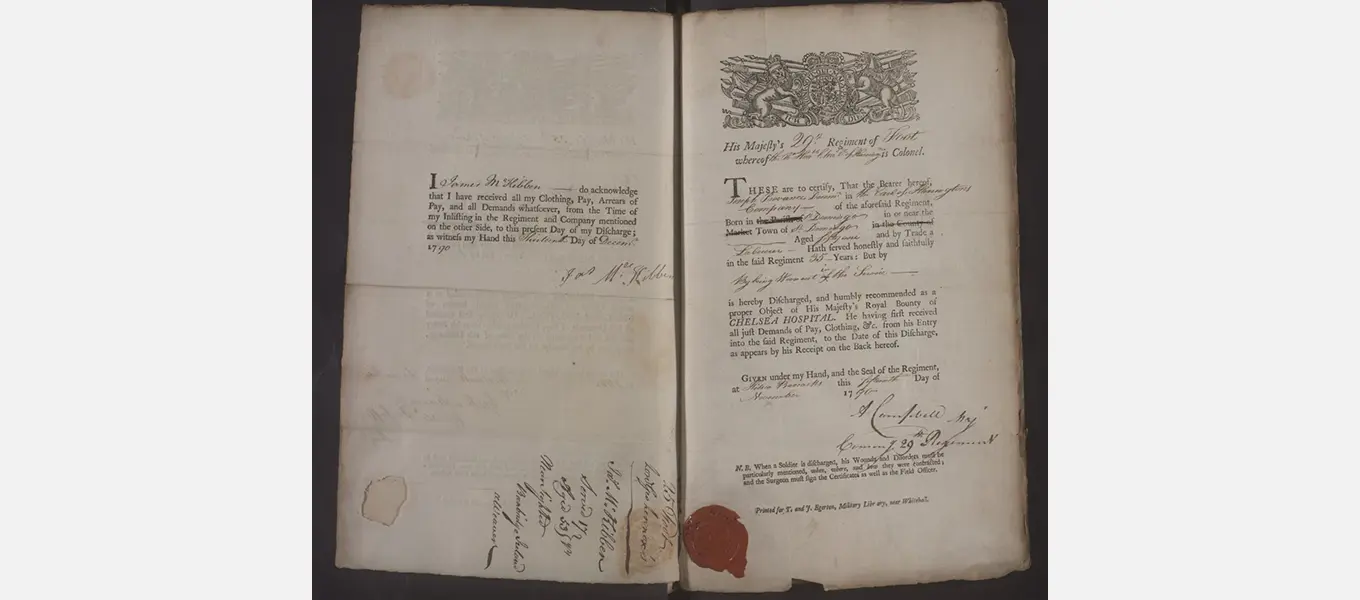 I James McKibben do acknowledge
that I have received all my Clothing, Pay, Arrears of
Pay, and all Demands whatsoever, from the Time of
my Inlisting in the Regiment and Company mentioned
on the other Side, to this present Day of my Discharge;
as witness my Hand this Day of Decem
1790
Jas McKibben
Jas. McKibben
Served 17
Aged 53
Near Sighted
Ireland
His Majesty's 29th Regiment of Foot
whereof is Colonel.
THESE are to certify, That the Bearer hereof,
in the Earl of Harrington's
Company of the aforesaid Regiment,
Born in the Parish of St Domingo in or near the
Market Town of St Domingo in the County of
Aged and by Trade a
Labourer Hath served honestly and faithfully
in the said Regiment 35 Years: But by
Being Worn out in the Service
is hereby Discharged, and humbly recommended as a
proper Object of His Majesty's Royal Bounty of
CHELSEA HOSPITAL. He having first received
all just Demands of Pay, Clothing, &c. from his Entry
into the said Regiment, to the Date of this Discharge,
as appears by his Receipt on the Back hereof.
GIVEN under my Hand, and the Seal of the Regiment,
at Hilsea Barracks this Day of
November 1790
A Campbell Maj
Commg 29th Regiment
N.B. When a Soldier is discharged, his Wounds and Disorders must be
particularly mentioned, when, where, and how they were contracted;
and the Surgeon must sign the Certificates as well as the Field Officer.
Printed for T. and J. Egerton, Military Library, near Whitehall.